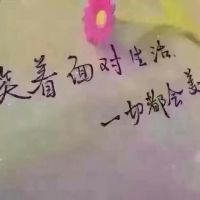 笑着面对生活.
一切都会美